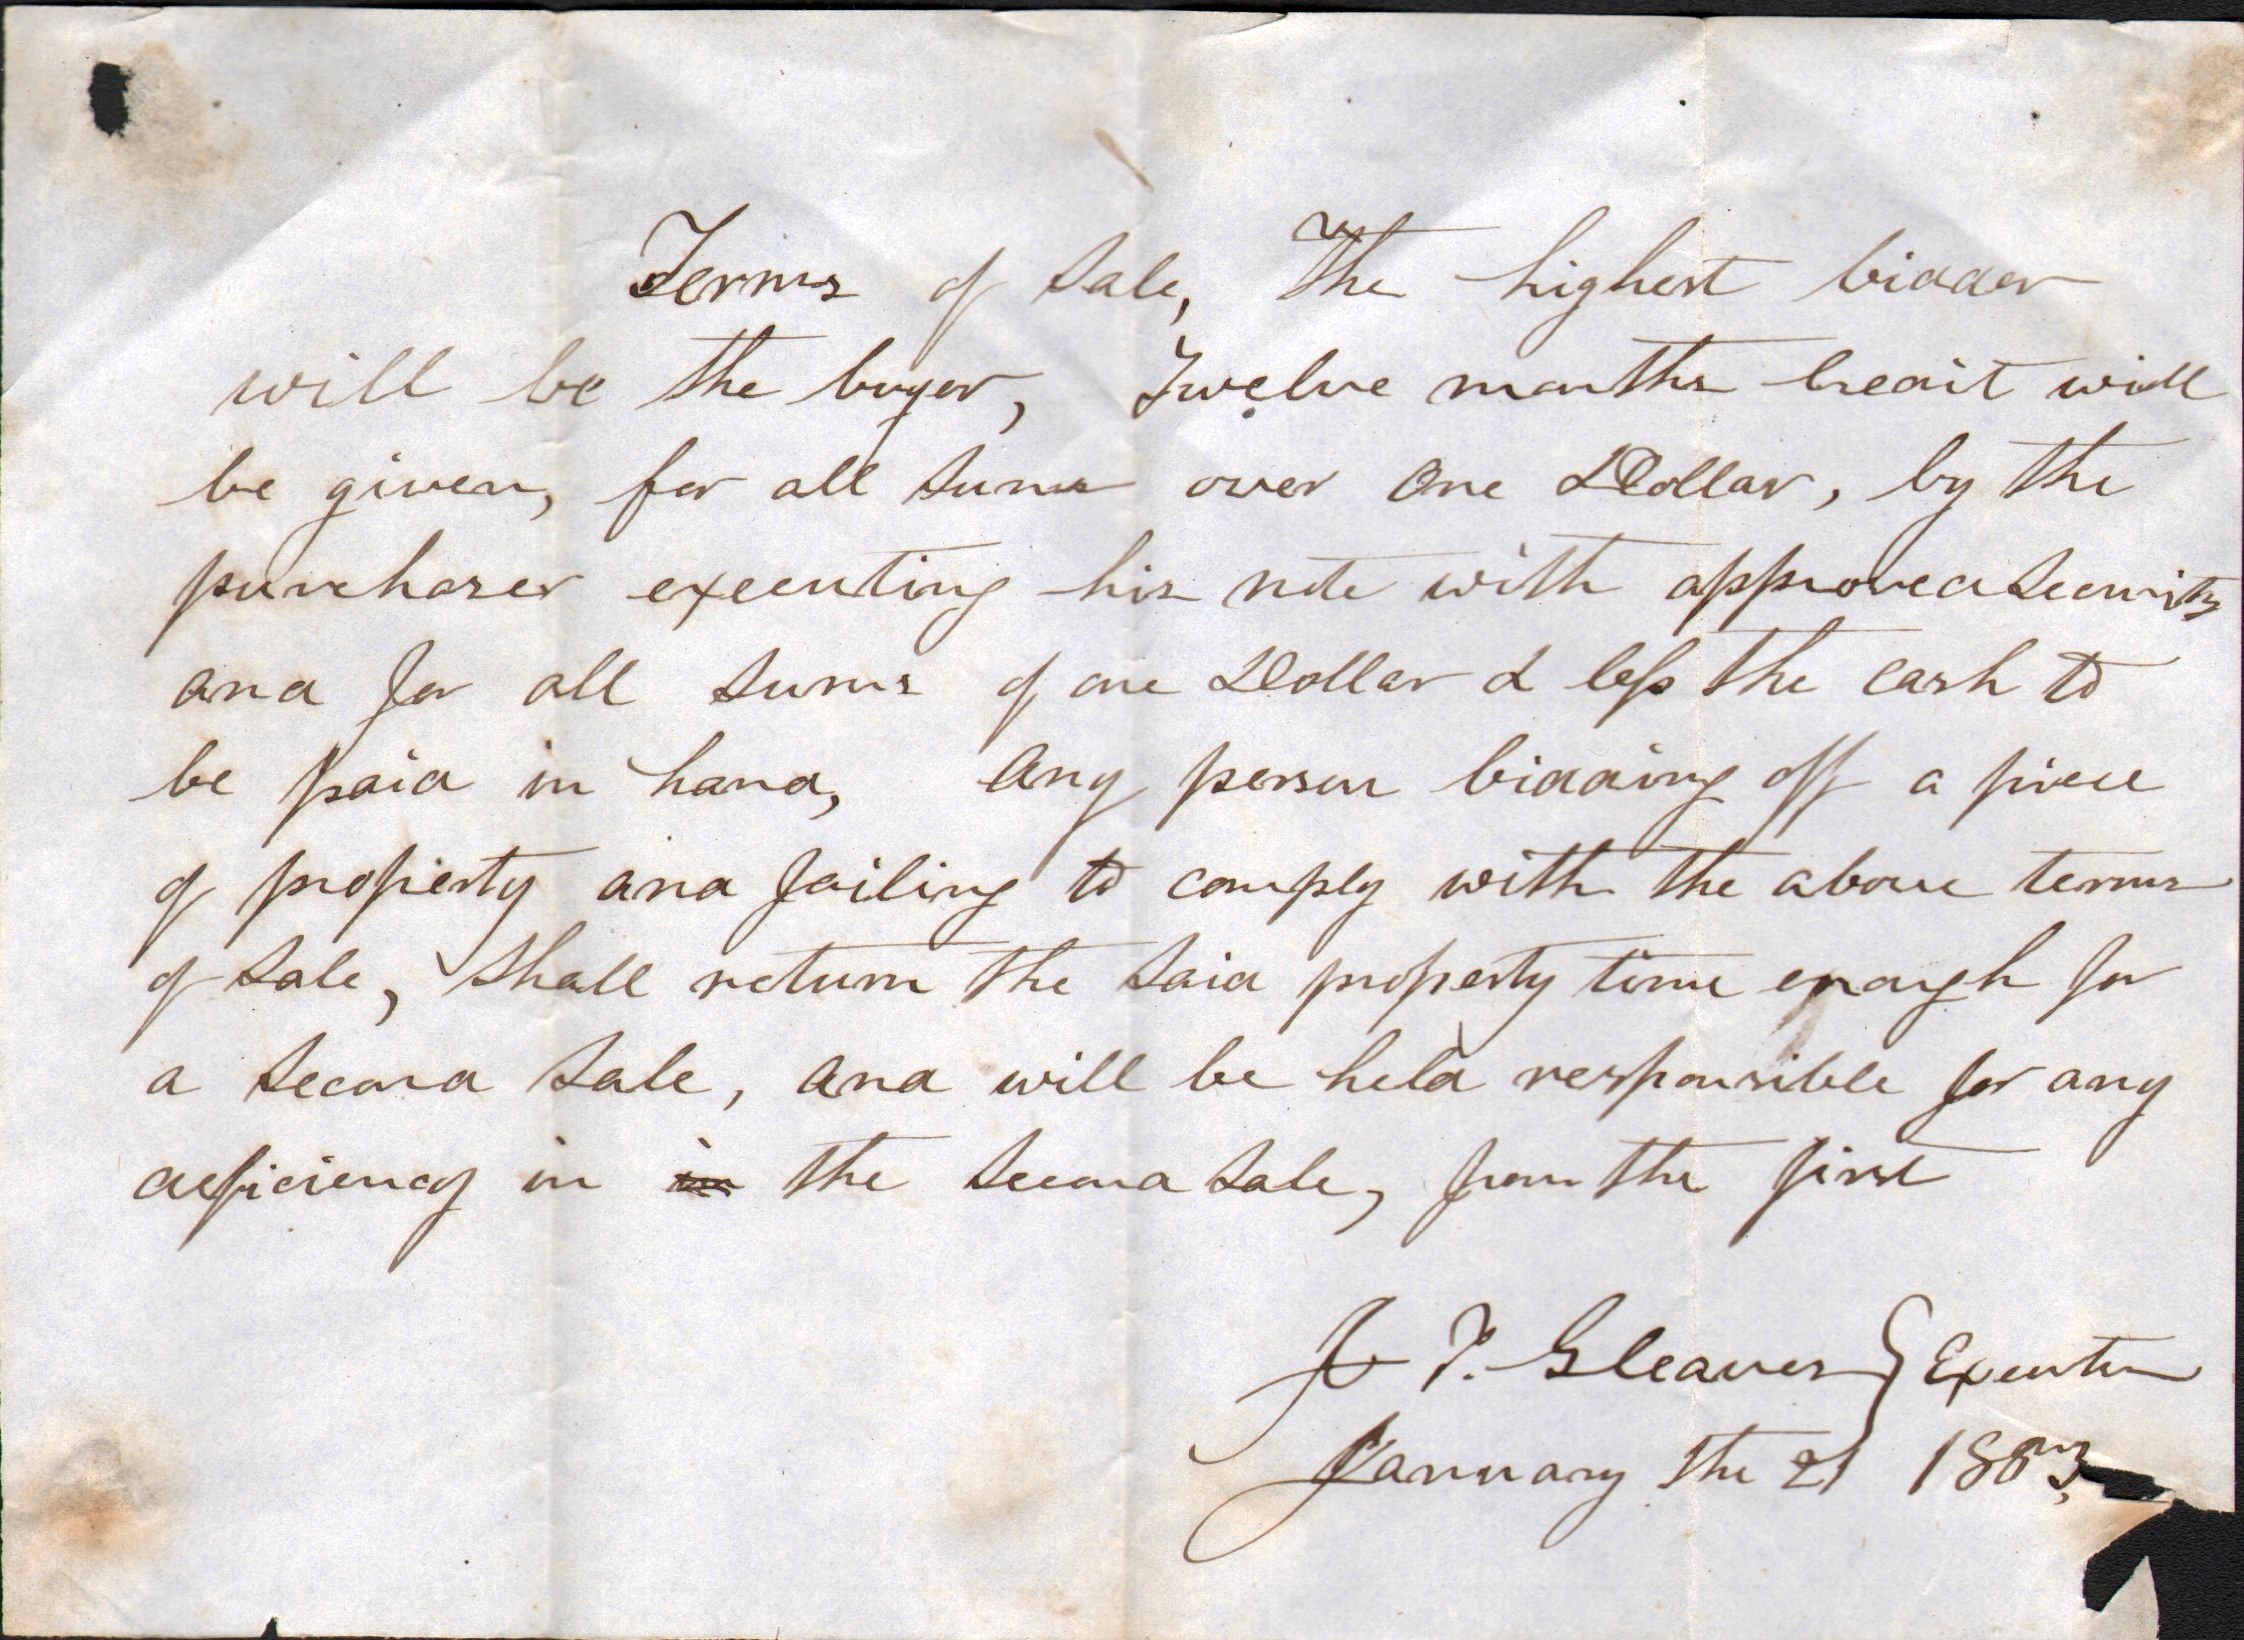 Terms of Sale, The highest bidder
will be the buyer, Twelve months credit will
be given, for all sums over One Dollar, by the
purchaser executing his note with approved security
and for all sums of one Dollar & less the cash to
be paid in hand, Any person bidding off a piece
of property and failing to comply with the above terms
of Sale, shall return the said property time enough for
a second sale, and will be held responsible for any
deficiency in in the second sale, from the first
J. T. Gleaves } Executor
January the 21